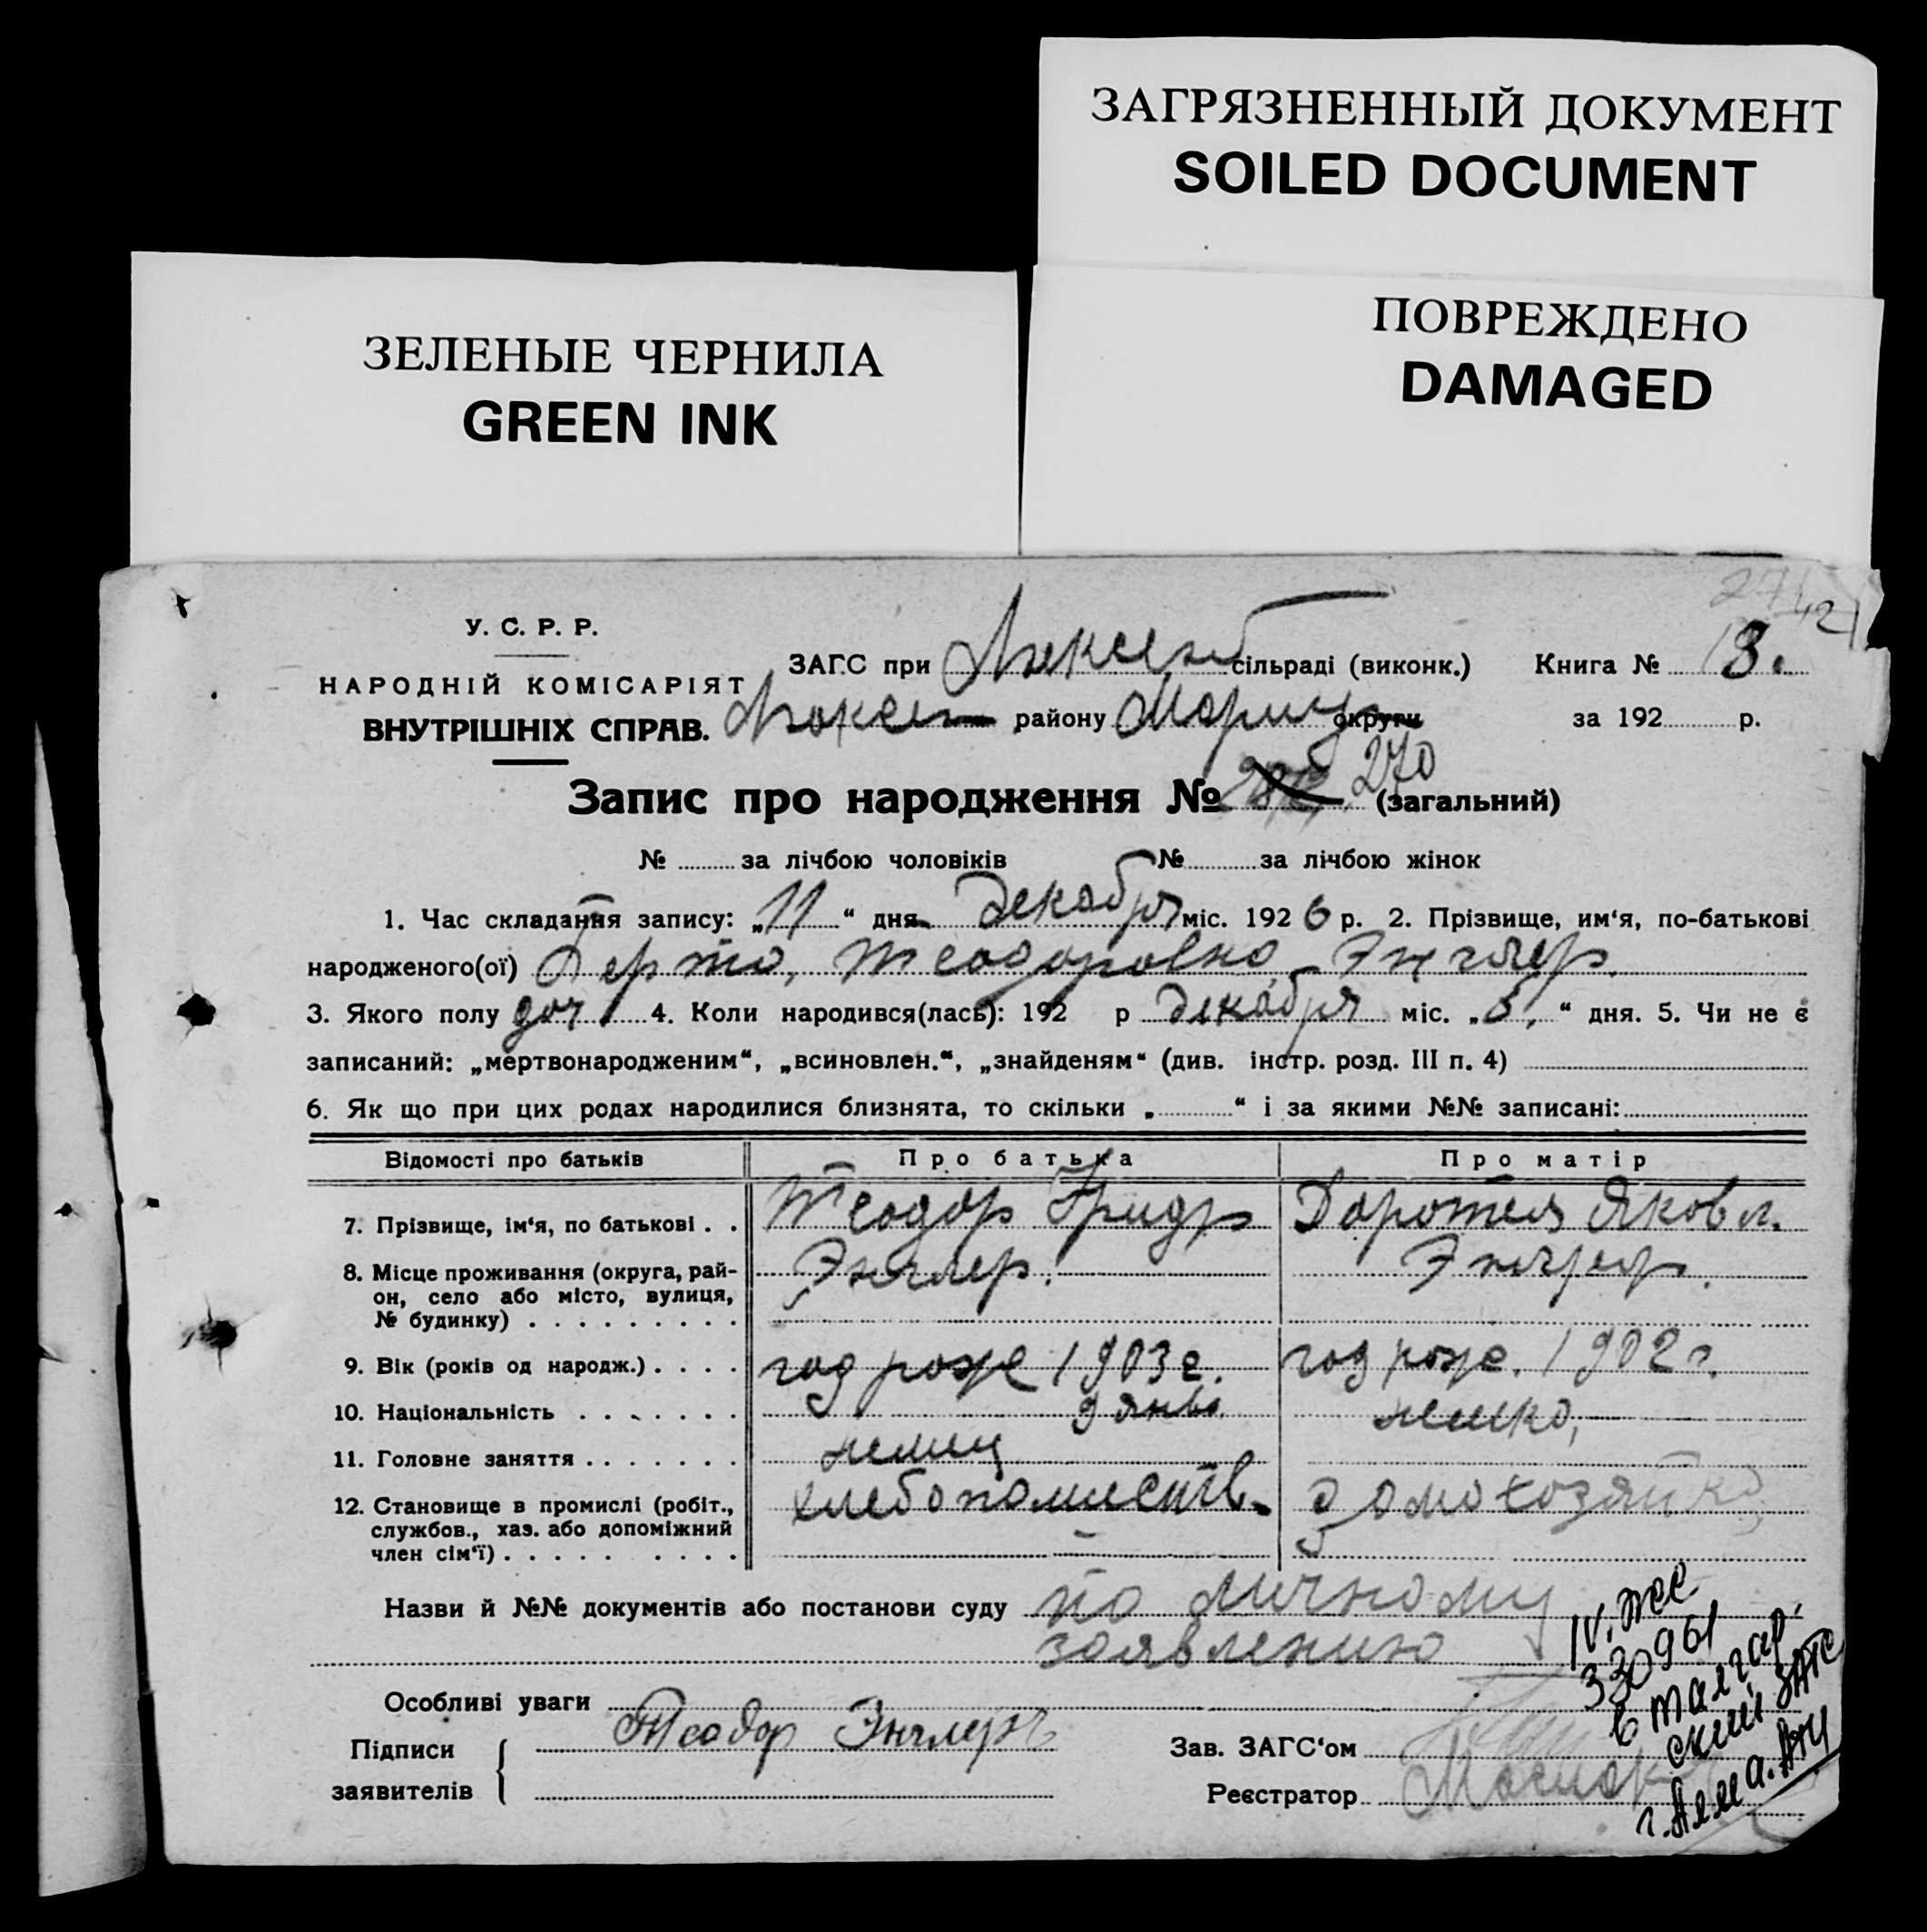 ЗАГРЯЗНЕННЫЙ ДОКУМЕНТ
SOILED DOCUMENT
ЗЕЛЕНЫЕ ЧЕРНИЛА
GREEN INK
ПОВРЕЖДЕНО
DAMAGED
У. С. Р. Р.
НАРОДНІЙ КОМІСАРІЯТ
ВНУТРІШНІХ СПРАВ.
ЗАГС при сільраді (виконк.) Книга № 13.
району округи за 192 р.
Запис про народження № 270 (загальний)
№ за лічбою чоловіків № за лічбою жінок
1. Час складання запису: „11“ дня декабря міс. 1926 р. 2. Прізвище, им'я, по-батькові
народженого(ої) Берта, Теодоровна Энглер.
3. Якого полу доч 4. Коли народився(лась): 192 р декабря міс. „5,“ дня. 5. Чи не є
записаний: „мертвонародженим“, „всиновлен.“, „знайденям“ (див. інстр. розд. III п. 4)
6. Як що при цих родах народилися близнята, то скільки „ “ і за якими №№ записані:
Відомості про батьків Про батька Про матір
7. Прізвище, ім'я, по батькові . . Теодор Фридр Доротея Яковл.
8. Місце проживання (округа, рай- Энглер. Энглер.
он, село або місто, вулиця,
№ будинку) . . . . . . . . .
9. Вік (років од народж.) . . . . год рожд 1903 г. год рожд. 1902 г.
10. Національність . . . . . . . 9 янв. немка,
11. Головне заняття . . . . . . . немец
12. Становище в промислі (робіт., домохозяйка
службов., хаз. або допоміжний
член сім'ї) . . . . . . . . .
Назви й №№ документів або постанови суду по личному
заявлению
Особливі уваги
Підписи Теодор Энглер
заявителів
Зав. ЗАГС'ом
Реєстратор
IV. жс
330961
в Талгар.
ский ЗАГС
г. Алма-Аты